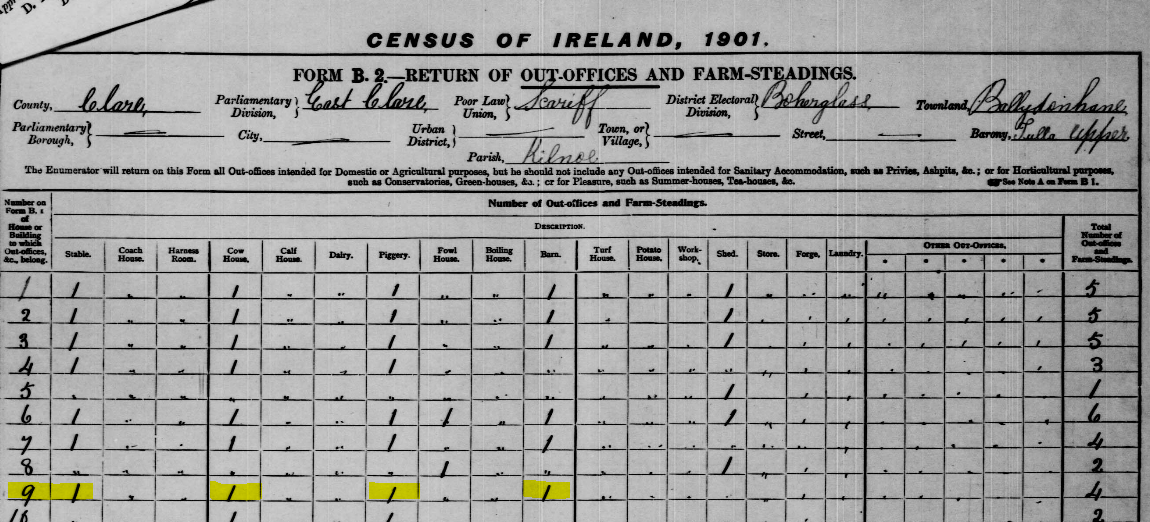 CENSUS OF IRELAND, 1901.
FORM B. 2.—RETURN OF OUT-OFFICES AND FARM-STEADINGS.
County, Clare, Parliamentary Division, East Clare, Poor Law Union, Scariff District Electoral Division, Boherglass Townland, Ballydonhane
Parliamentary Borough, City, Urban District, Town, or Village, Street, Barony, Tulla Upper
Parish, Kilnoe
The Enumerator will return on this Form all Out-offices intended for Domestic or Agricultural purposes, but he should not include any Out-offices intended for Sanitary Accommodation, such as Privies, Ashpits, &c.; or for Horticultural purposes,
such as Conservatories, Green-houses, &c.; or for Pleasure, such as Summer-houses, Tea-houses, &c. See Note A on Form B 1.
Number on Form B. 1 of House or Building to which Out-offices, &c., belong.
Number of Out-offices and Farm-Steadings.
DESCRIPTION.
Stable. Coach House. Harness Room. Cow House. Calf House. Dairy. Piggery. Fowl House. Boiling House. Barn. Turf House. Potato House. Work-shop. Shed. Store. Forge. Laundry. OTHER OUT-OFFICES. Total Number of Out-offices and Farm-Steadings.
1 1 " " 1 " " 1 " " 1 " " " 1 " " " " " " " " 5
2 1 " " 1 " " 1 " " 1 " " " 1 " " " " " " " " 5
3 1 " " 1 " " 1 " " 1 " " " 1 " " " " " " " " 5
4 1 " " 1 " " 1 " " " " " " " " " " " " " " " 3
5 " " " " " " " " " " " " " 1 " " " " " " " " 1
6 1 " " 1 " " 1 1 " 1 " " " 1 " " " " " " " " 6
7 1 " " 1 " " 1 " " 1 " " " " " " " " " " " " 4
8 " " " " " " " 1 " " " " " 1 " " " " " " " " 2
9 1 " " 1 " " 1 " " 1 " " " " " " " " " " " " 4
10 1 1 2